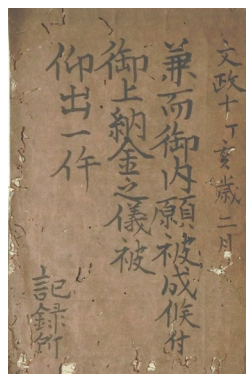 文政十丁亥歳二月
兼而御内願被成候付
御上納金之儀被
仰出一件
記録所